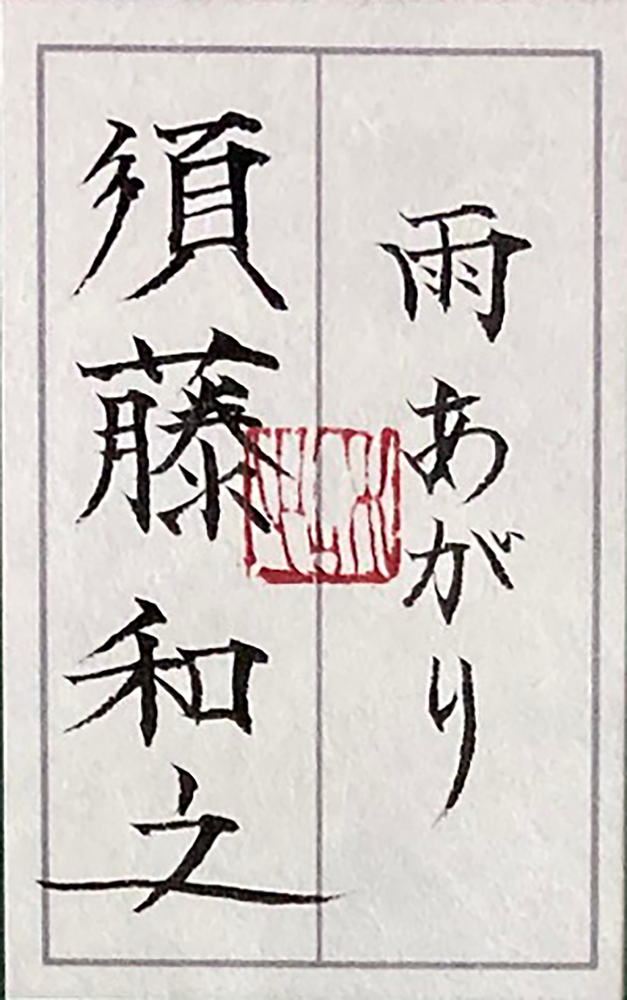 雨あがり
須藤和之